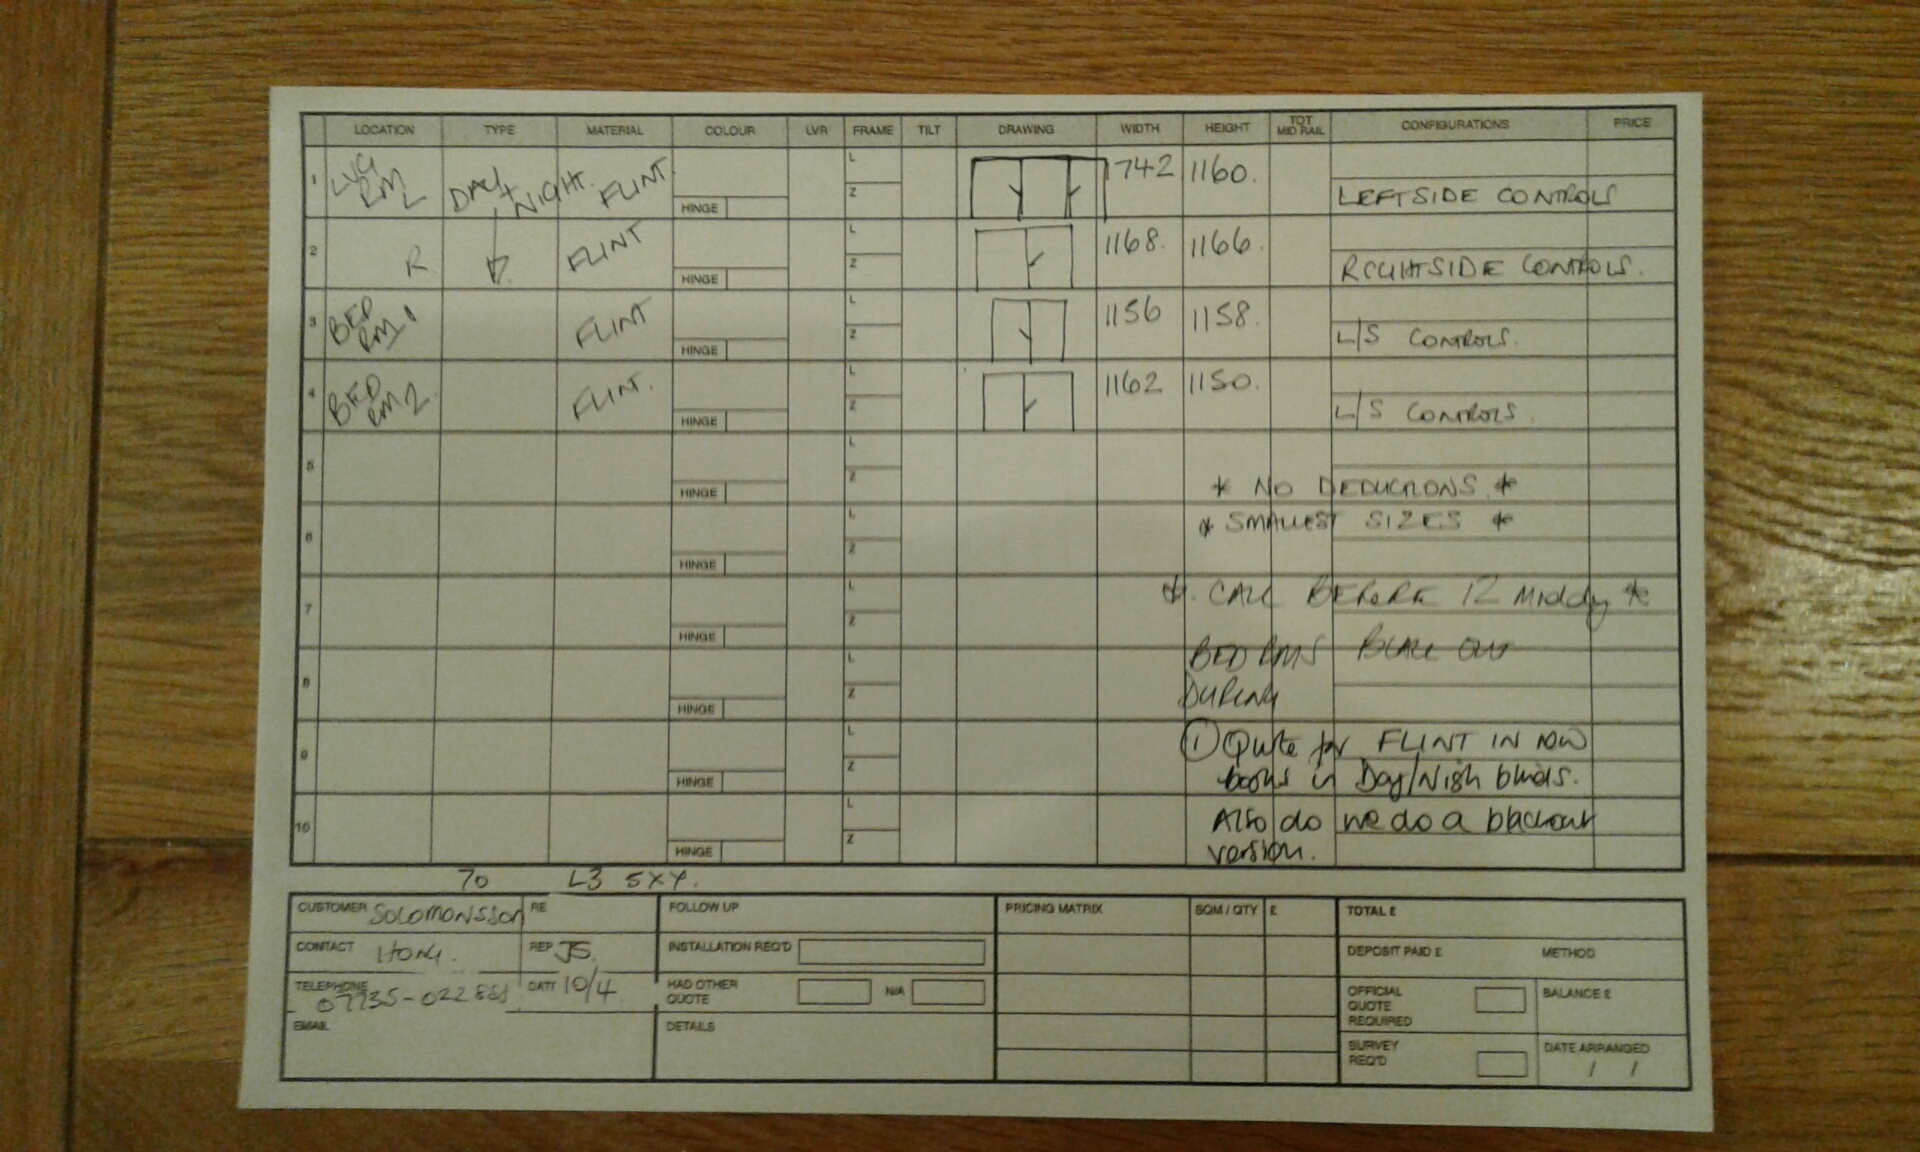 LOCATION TYPE MATERIAL COLOUR LVR FRAME TILT DRAWING WIDTH HEIGHT TOT MID RAIL CONFIGURATIONS PRICE
1 LVG RM L DAY + NIGHT. FLINT HINGE L Z 1742 1160. LEFTSIDE CONTROLS
2 R FLINT HINGE L Z 1168. 1166. RIGHTSIDE CONTROLS.
3 BED RM 1 FLINT HINGE L Z 1156 1158. L/S CONTROLS.
4 BED RM 2. FLINT. HINGE L Z 1162 1150. L/S CONTROLS.
5 HINGE L Z * NO DEDUCTIONS *
6 HINGE L Z * SMALLEST SIZES *
7 HINGE L Z * CALL BEFORE 12 Midday *
8 HINGE L Z BED RMS
DURING
9 HINGE L Z 1 Quote for FLINT IN NEW
books in Day/Nigh blinds.
10 HINGE L Z Also do we do a blackout
version.
70 L3 5XY.
CUSTOMER SOLOMONSSON RE FOLLOW UP PRICING MATRIX SQM / QTY £ TOTAL £
CONTACT HONG. REP JS. INSTALLATION REQ'D DEPOSIT PAID £ METHOD
TELEPHONE DATE 10/4 HAD OTHER QUOTE N/A OFFICIAL QUOTE REQUIRED BALANCE £
EMAIL DETAILS SURVEY REQ'D DATE ARRANGED / /